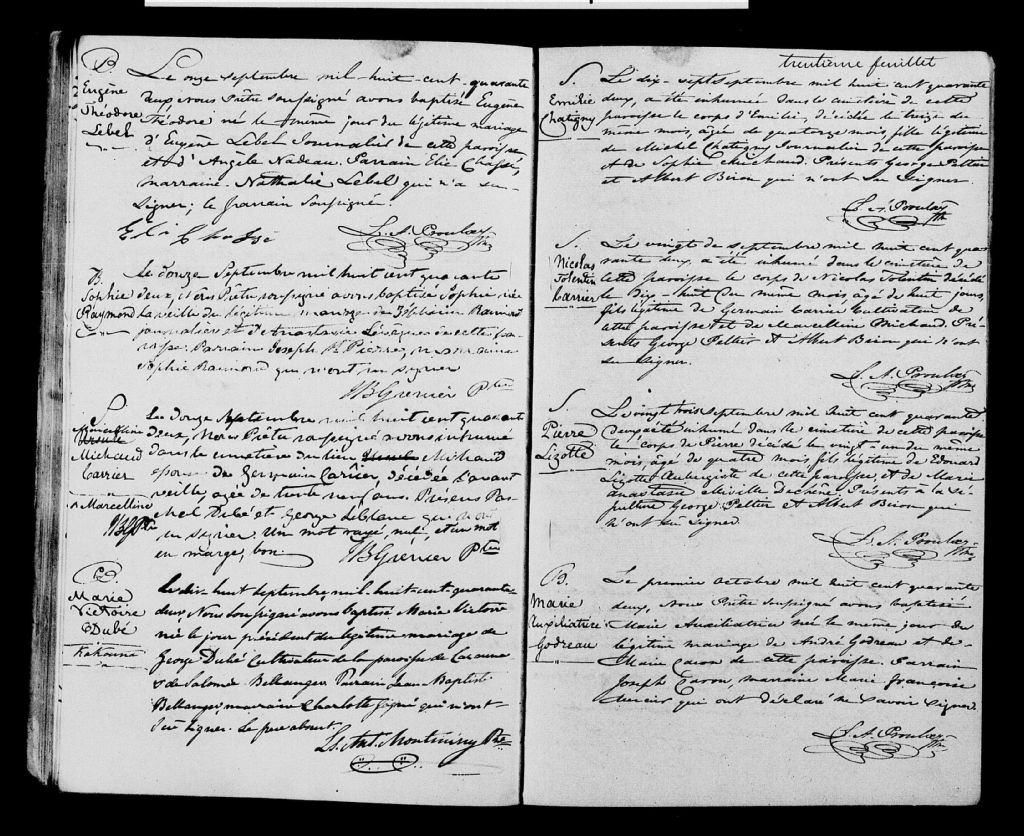 B.
Eugène
Théodore
Lebel
Le onze septembre mil-huit-cent-quarante
deux, nous Prêtre soussigné avons baptisé Eugène
Théodore né le même jour du légitime mariage
d'Eugène Lebel Journalier de cette paroisse
et d'Angèle Nadeau. Parrain Elie Chassé,
marraine Nathalie Lebel qui n'a su
signer; le parrain soussigné.
Eli Chassé
L. A. Proulx Ptre
B.
Sophie
Raymond
Le douze Septembre mil huit cent quarante
deux, Nous Prêtre soussigné avons baptisé Sophie née
la veille du légitime mariage de Raimond
journalier et d'Anastasie Lévêque de cette pa-
roisse. Parrain Joseph St. Pierre, marraine
Sophie Raimond qui n'ont su signer
JB Grenier Ptre
S.
Marcelline
Michaud
Carrier
Marcelline
JBG Ptre
Le douze septembre mil huit cent quarante
deux, Nous Prêtre soussigné avons inhumé
dans le cimetière du lieu Michaud
épouse de Germain Carrier, décédée l'avant
veille, agée de trente neuf ans. Présens Pas-
chal Dubé et George Leblanc qui n'ont
su signer. Un mot rayé, nul, et un mot
en marge, bon.
JB Grenier Ptre
B.
Marie
Victoire
Dubé
Kakouna
Le dix-huit septembre mil huit-cent-quarante-
deux, Nous soussigné avons baptisé Marie Victoire
née le jour précédent du légitime mariage de
George Dubé Cultivateur de la paroisse de Cacouna
& de Salomé Bellanger Parrain Jean-Baptiste
Bellanger, marraine Charlotte Gagné qui n'ont
su signer. Le père absent.
Ls. Ant. Montminy Ptre
trentieme feuillet
S.
Emilie
Chatigny
Le dix-sept septembre mil huit cent quarante
deux, a été inhumée dans le cimetière de cette
paroisse le corps d'Emilie, décédée le treize du
même mois, âgée de quatorze mois, fille légitime
de Michel Chatigny Journalier de cette paroisse
& de Sophie Michaud. Présents George Peltier
et Albert Biron qui n'ont su signer.
L. A. Proulx Ptre
S.
Nicolas
Tolentin
Carrier
Le vingt de septembre mil huit cent qua-
rante deux, a été inhumé dans le cimetière de
cette paroisse le corps de Nicolas Tolentin décédé
le dix-huit du même mois, âgé de huit jours,
fils légitime de Germain Carrier Cultivateur de
cette paroisse et de Marcelline Michaud. Pré-
sents George Peltier & Albert Biron qui n'ont
su signer.
L. A. Proulx Ptre
S.
Pierre
Lizotte
Le vingt trois septembre mil huit cent quarante
deux a été inhumé dans le cimetière de cette paroisse
le corps de Pierre décédé le vingt-un du même
mois, âgé de quatre mois fils légitime de Edouard
Lizotte Aubergiste de cette paroisse, & de Marie
Anastasie Miville Dechêne. Présents à la sé-
pulture George Peltier et Albert Biron qui
n'ont su signer.
L. A. Proulx Ptre
B.
Marie
Auxiliatrice
Godreau
Le premier octobre mil huit cent quarante
deux, Nous Prêtre soussigné avons baptisé
Marie Auxiliatrice née le même jour du
légitime mariage de André Godreau et de
Marie Caron de cette paroisse. Parrain
Joseph Caron, marraine Marie Françoise
Mercier qui ont déclaré ne savoir signer.
L. A. Proulx Ptre